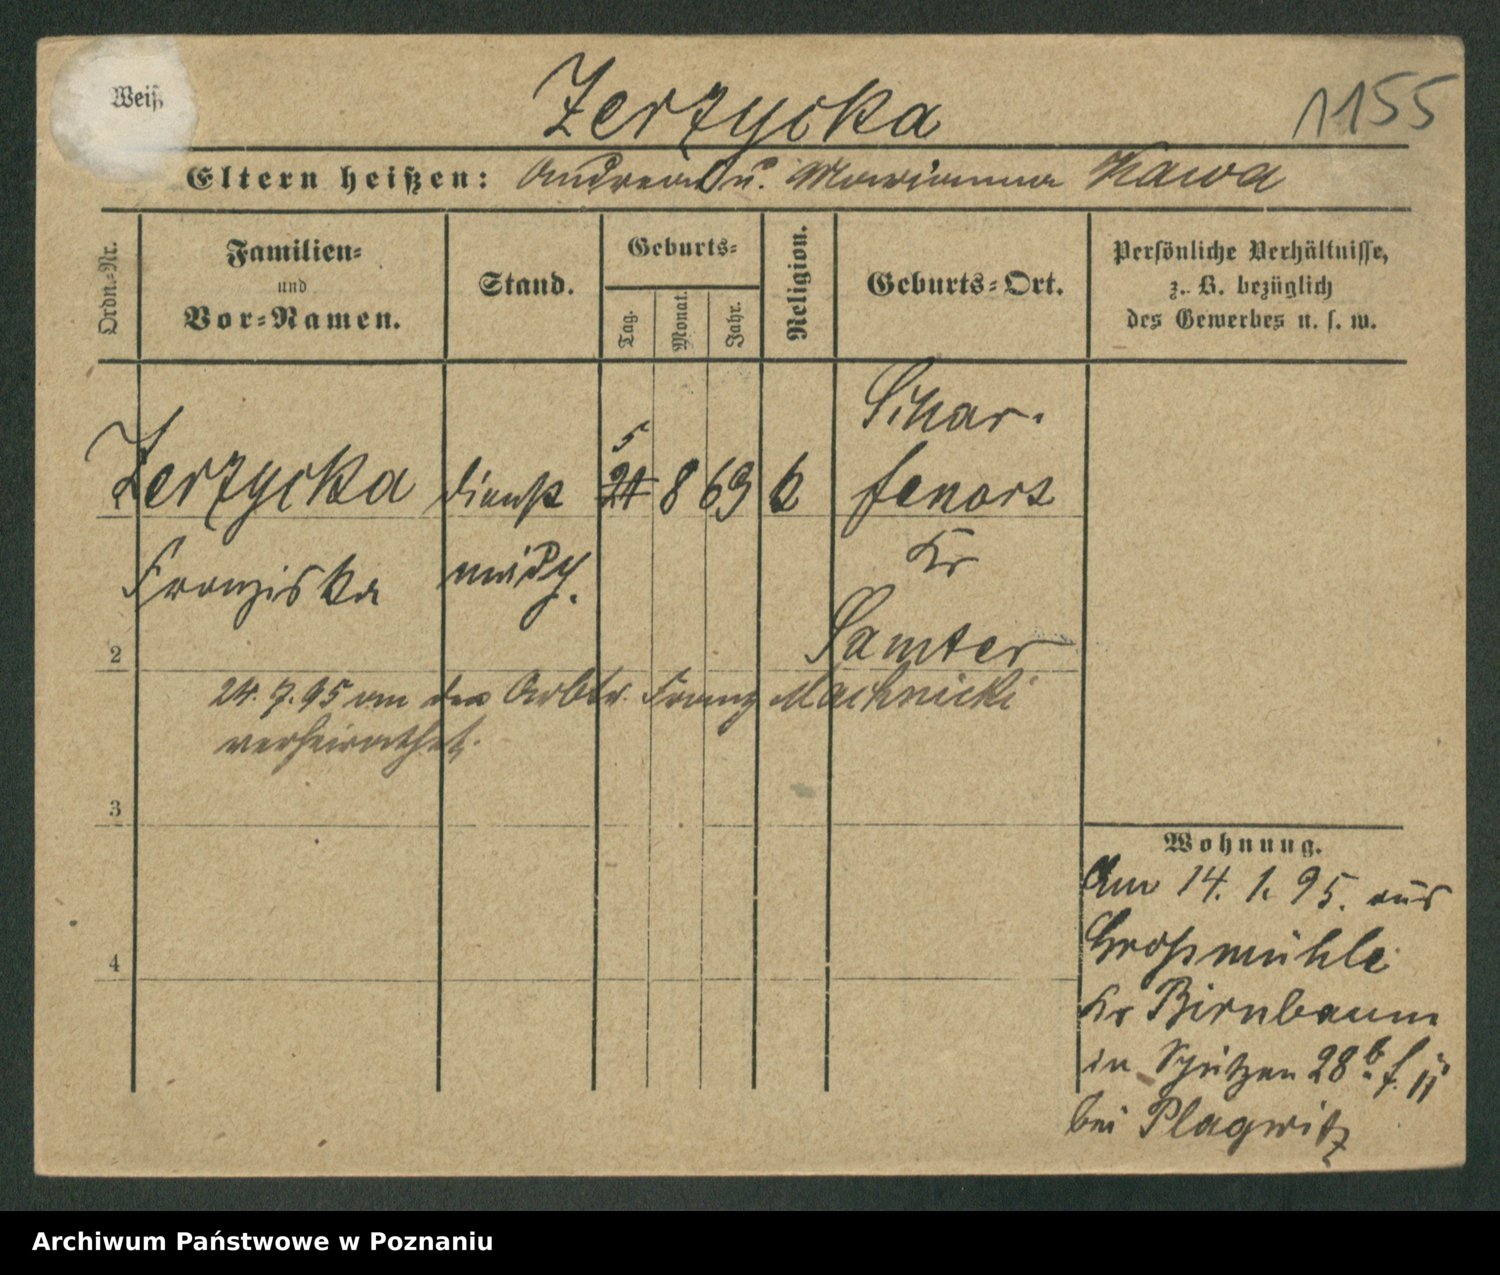 Weiß
Zerzycka
1155
Eltern heißen: Andreas u. Marianna Kawa
Ordn.-Nr.
Familien-
und
Vor-Namen.
Stand.
Geburts-
Tag.
Monat.
Jahr.
Religion.
Geburts-Ort.
Persönliche Verhältnisse,
z. B. bezüglich
des Gewerbes u. s. w.
Schar-
5
Zerzycka dienst 24 8 69 k fenort
Kr
Franziska mädch.
Samter
2
24.7.95 an den Arbtr. Franz Machnicki
verheirathet.
3
4
Wohnung.
Am 14. 1. 95. aus
Großmühle
Kr Birnbaum
in Schützen 28b f. II
bei Plagwitz
Archiwum Państwowe w Poznaniu